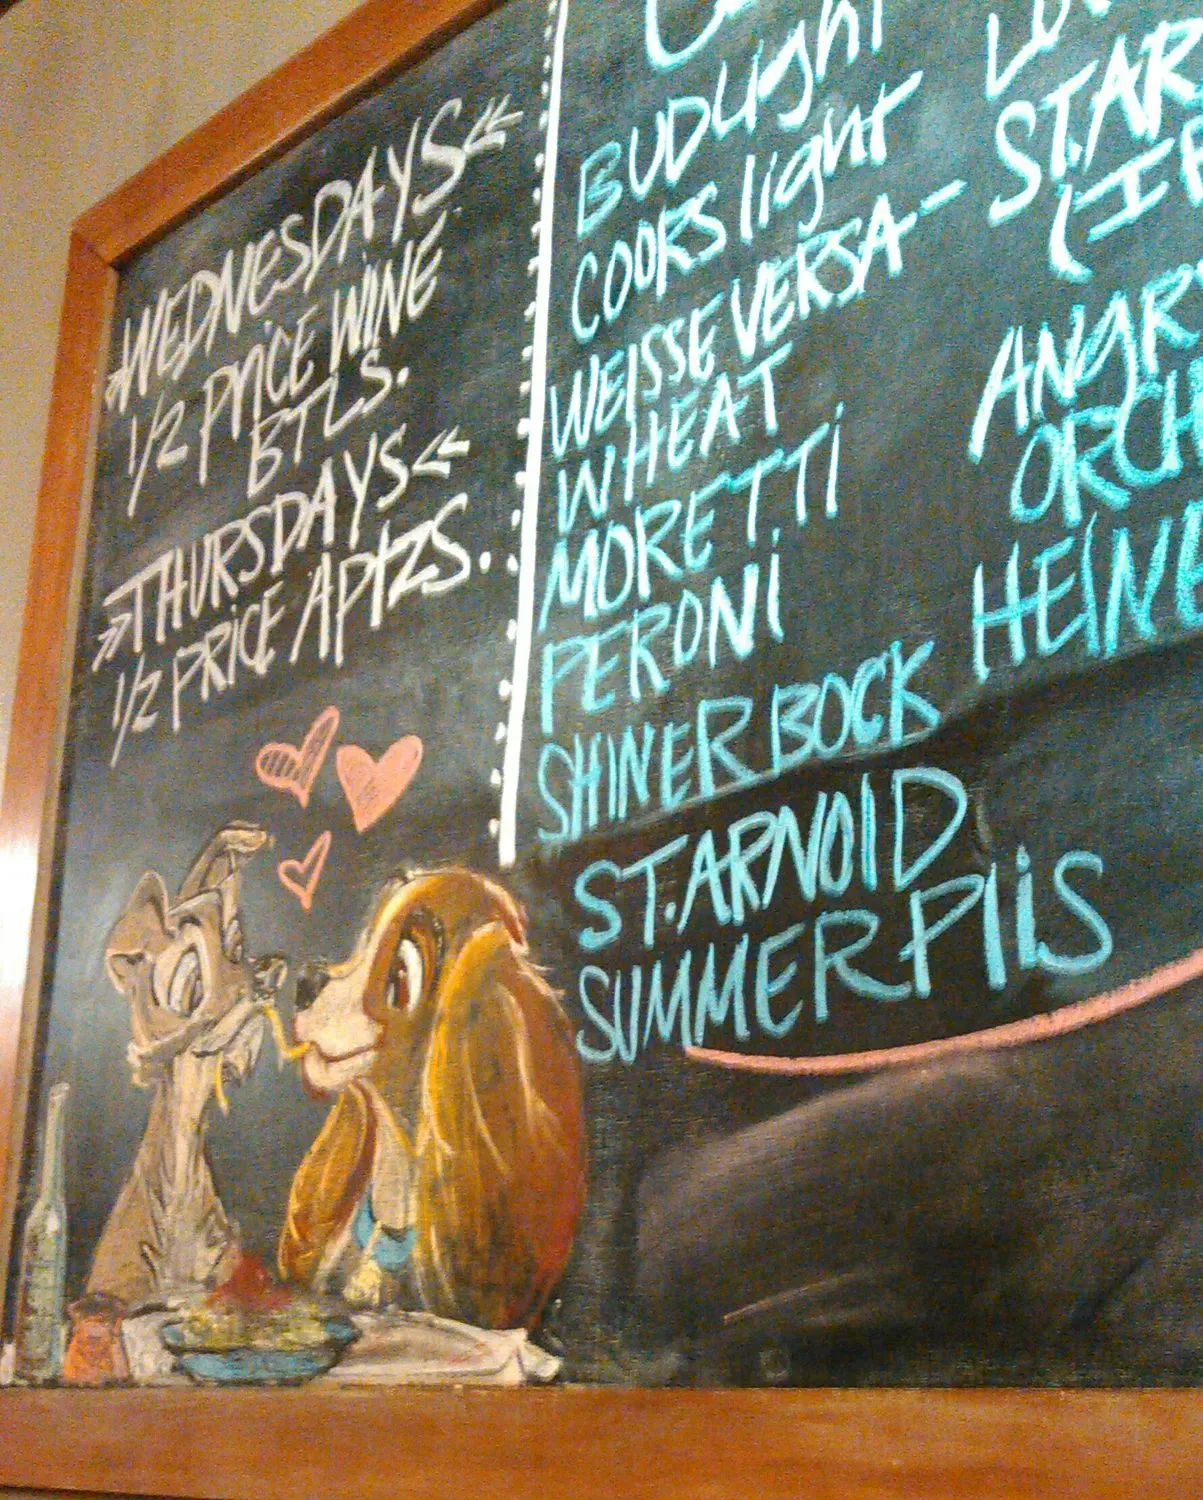 »WEDNESDAYS«
1/2 PRICE WINE
BTLS.
»THURSDAYS«
1/2 PRICE APTZS.
BUD LIGHT
COORS light
WEISSE VERSA-
WHEAT
MORETTI
PERONI
SHINER BOCK
ST. ARNOID
SUMMER PILS
ST. AR
ANGR
ORCH
HEINE